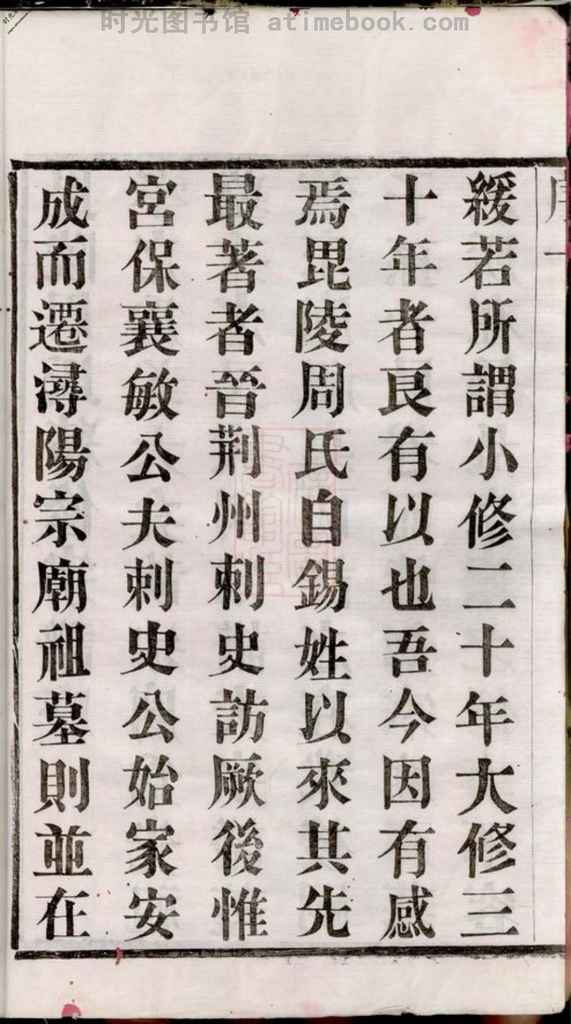 时光图书馆 atimebook.com
序一
緩若所謂小修二十年大修三
十年者良有以也吾今因有感
焉毘陵周氏自錫姓以來其先
最著者晉荆州刺史訪厥後惟
宮保襄敏公夫刺史公始家安
成而遷潯陽宗廟祖墓則並在